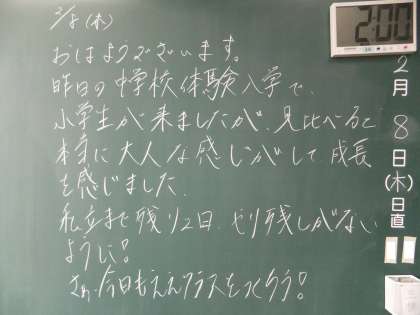 2/8(木)
おはようございます。
昨日の中学校体験入学で、
小学生が来ましたが、見比べると
本当に大人な感じがして、成長
を感じました。
私立まで残り2日、やり残しがない
ように!
さぁ、今日もええクラスをつくろう!
2:00
2月8日(木)日直